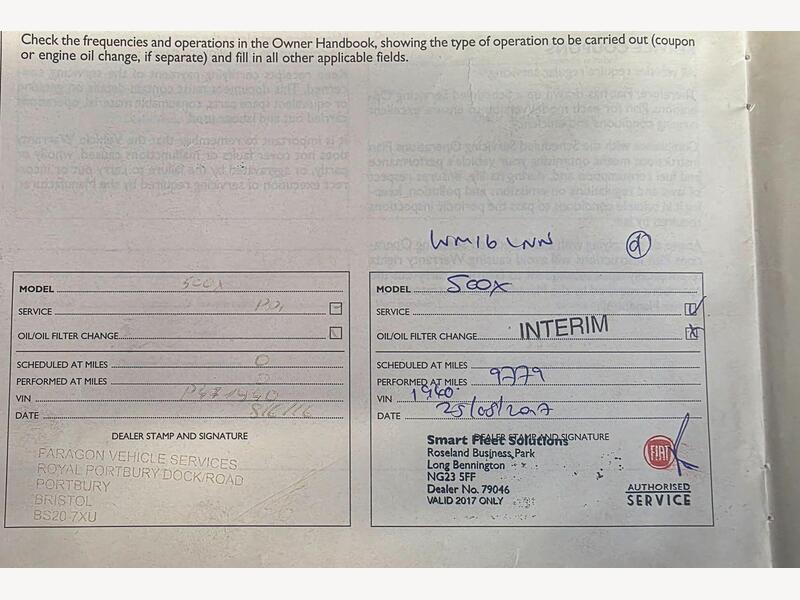 Check the frequencies and operations in the Owner Handbook, showing the type of operation to be carried out (coupon
or engine oil change, if separate) and fill in all other applicable fields.
MODEL 500X
SERVICE PDI
OIL/OIL FILTER CHANGE
SCHEDULED AT MILES 0
PERFORMED AT MILES 0
VIN P471940
DATE 8/6/16
DEALER STAMP AND SIGNATURE
PARAGON VEHICLE SERVICES
ROYAL PORTBURY DOCK/ROAD
PORTBURY
BRISTOL
BS20 7XU
WM16 LNN d
MODEL 500X
SERVICE
OIL/OIL FILTER CHANGE INTERIM
SCHEDULED AT MILES
PERFORMED AT MILES 9779
VIN 1940.
DATE 25/08/2017
DEALER STAMP AND SIGNATURE
Smart Fleet Solutions
Roseland Business Park
Long Bennington
NG23 5FF
Dealer No. 79046
VALID 2017 ONLY
FIAT
AUTHORISED
SERVICE